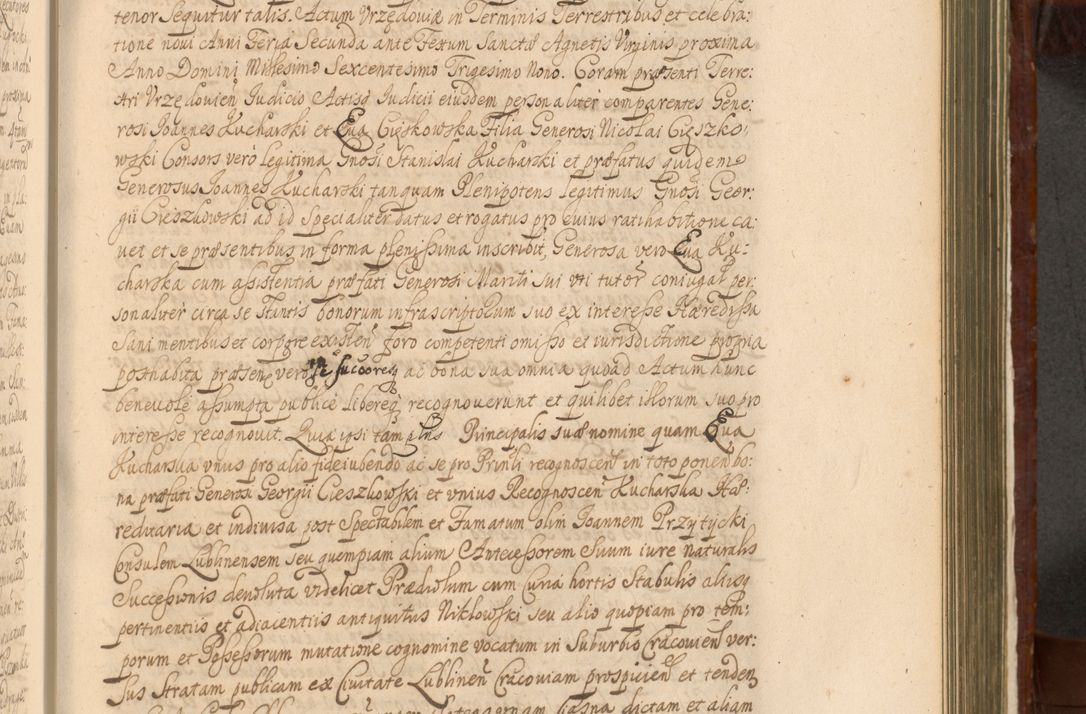 tenor sequitur talis. Actum Vrzędoviæ in Terminis Terrestribus et celebra:
tione novi Anni Feria Secunda ante Festum Sanctæ Agnetis Virginis proxima
Anno Domini Millesimo Sexcentesimo Trigesimo Nono. Coram præsenti Terre:
stri Vrzędovien Iudicio Actisq Iudicii eiusdem personaliter comparentes Gene:
rosi Ioannes Kucharski et Eva Cięskowska Filia Generosi Nicolai Cięszko:
wski Consors vero legitima Gnosi Stanislai Kucharski et præfatus quidem
Generosus Ioannes Kucharski tanquam Plenipotens legitimus Gnosi Geor:
gii Cieszkowski ad id specialiter datus et rogatus pro cuius ratihabitione ca:
vet et se præsentibus in forma plenissima inscribit, Generosa vero Eva Ku:
charska cum assistentia præfati Generosi Mariti sui vti tutor coniugal per:
sonaliter circa se stantis bonorum infrascriptorum suo ex interesse Hæredissa
Sani mentibus et corpore existen foro competenti omisso et iurisdictione propria
posthabita præsen vero se succoresq ac bona sua omnia quoad Actum hunc
benevole assumpta publice libereq recognoverunt et quilibet illorum suo pro
interesse recognovit. Quia ipsi tam Principalis suæ nomine quam Eva
Kucharska vnius pro alio fideiubendo ac se pro Prinli recognoscen in toto ponen bo:
na præfati Generosi Georgii Cieszkowski et vnius Recognoscen Kucharska Hæ:
reditaria et indivisa post Spectabilem et Famatum olim Ioannem Przytycki
Consulem Lublinensem seu quempiam alium Antecessorem Suum iure naturalis
Successionis devoluta videlicet Prædiolum cum Curia hortis Stabulis aliisq
pertinentiis et adiacentiis antiquitus Niklowski seu alio quopiam pro tem:
porum et Possessorum mutatione cognomine vocatum in Suburbio Cracovien ver:
sus Stratam publicam ex Civitate Lublinen Cracoviam prospicien et tenden
dictam et aliam